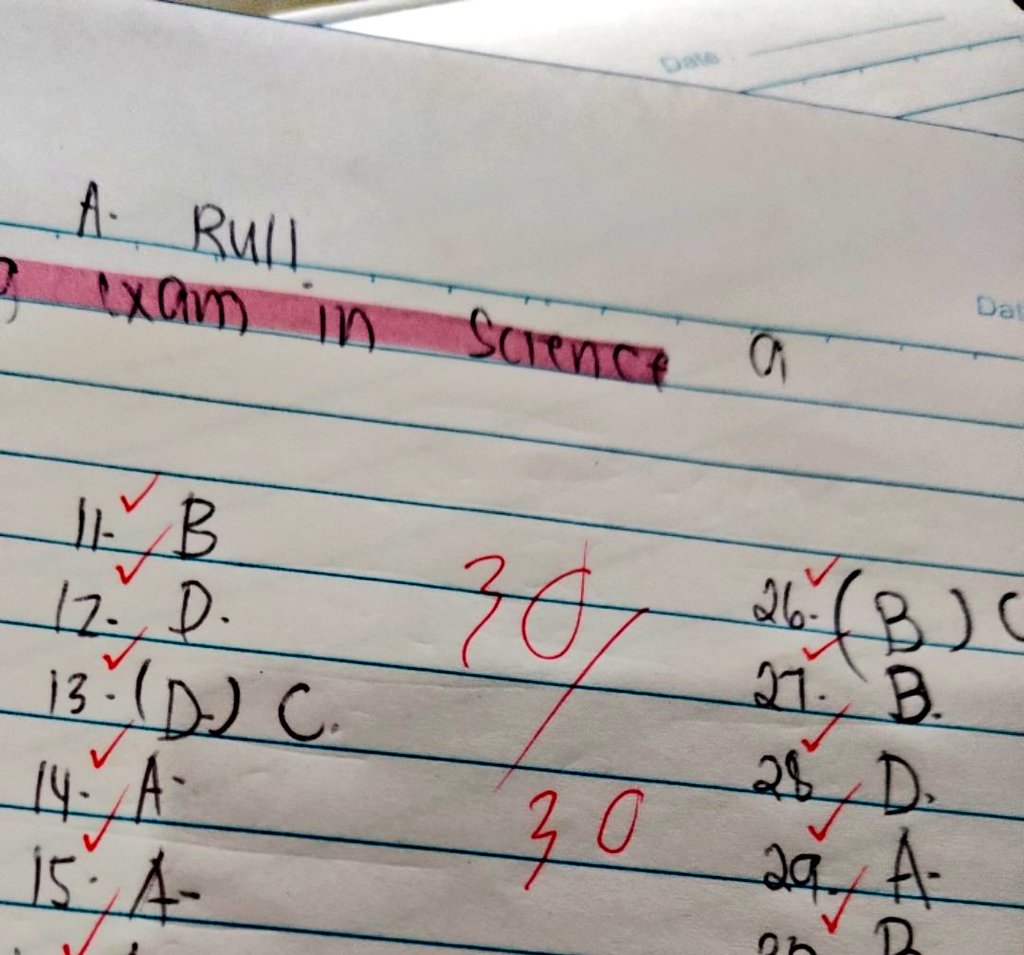 Date
A. Rull
Date
g exam in Science 9
11. B
12. D.
13. (D.) C.
14. A-
15. A-
30/30
26. (B) C
27. B.
28 D.
29. A-